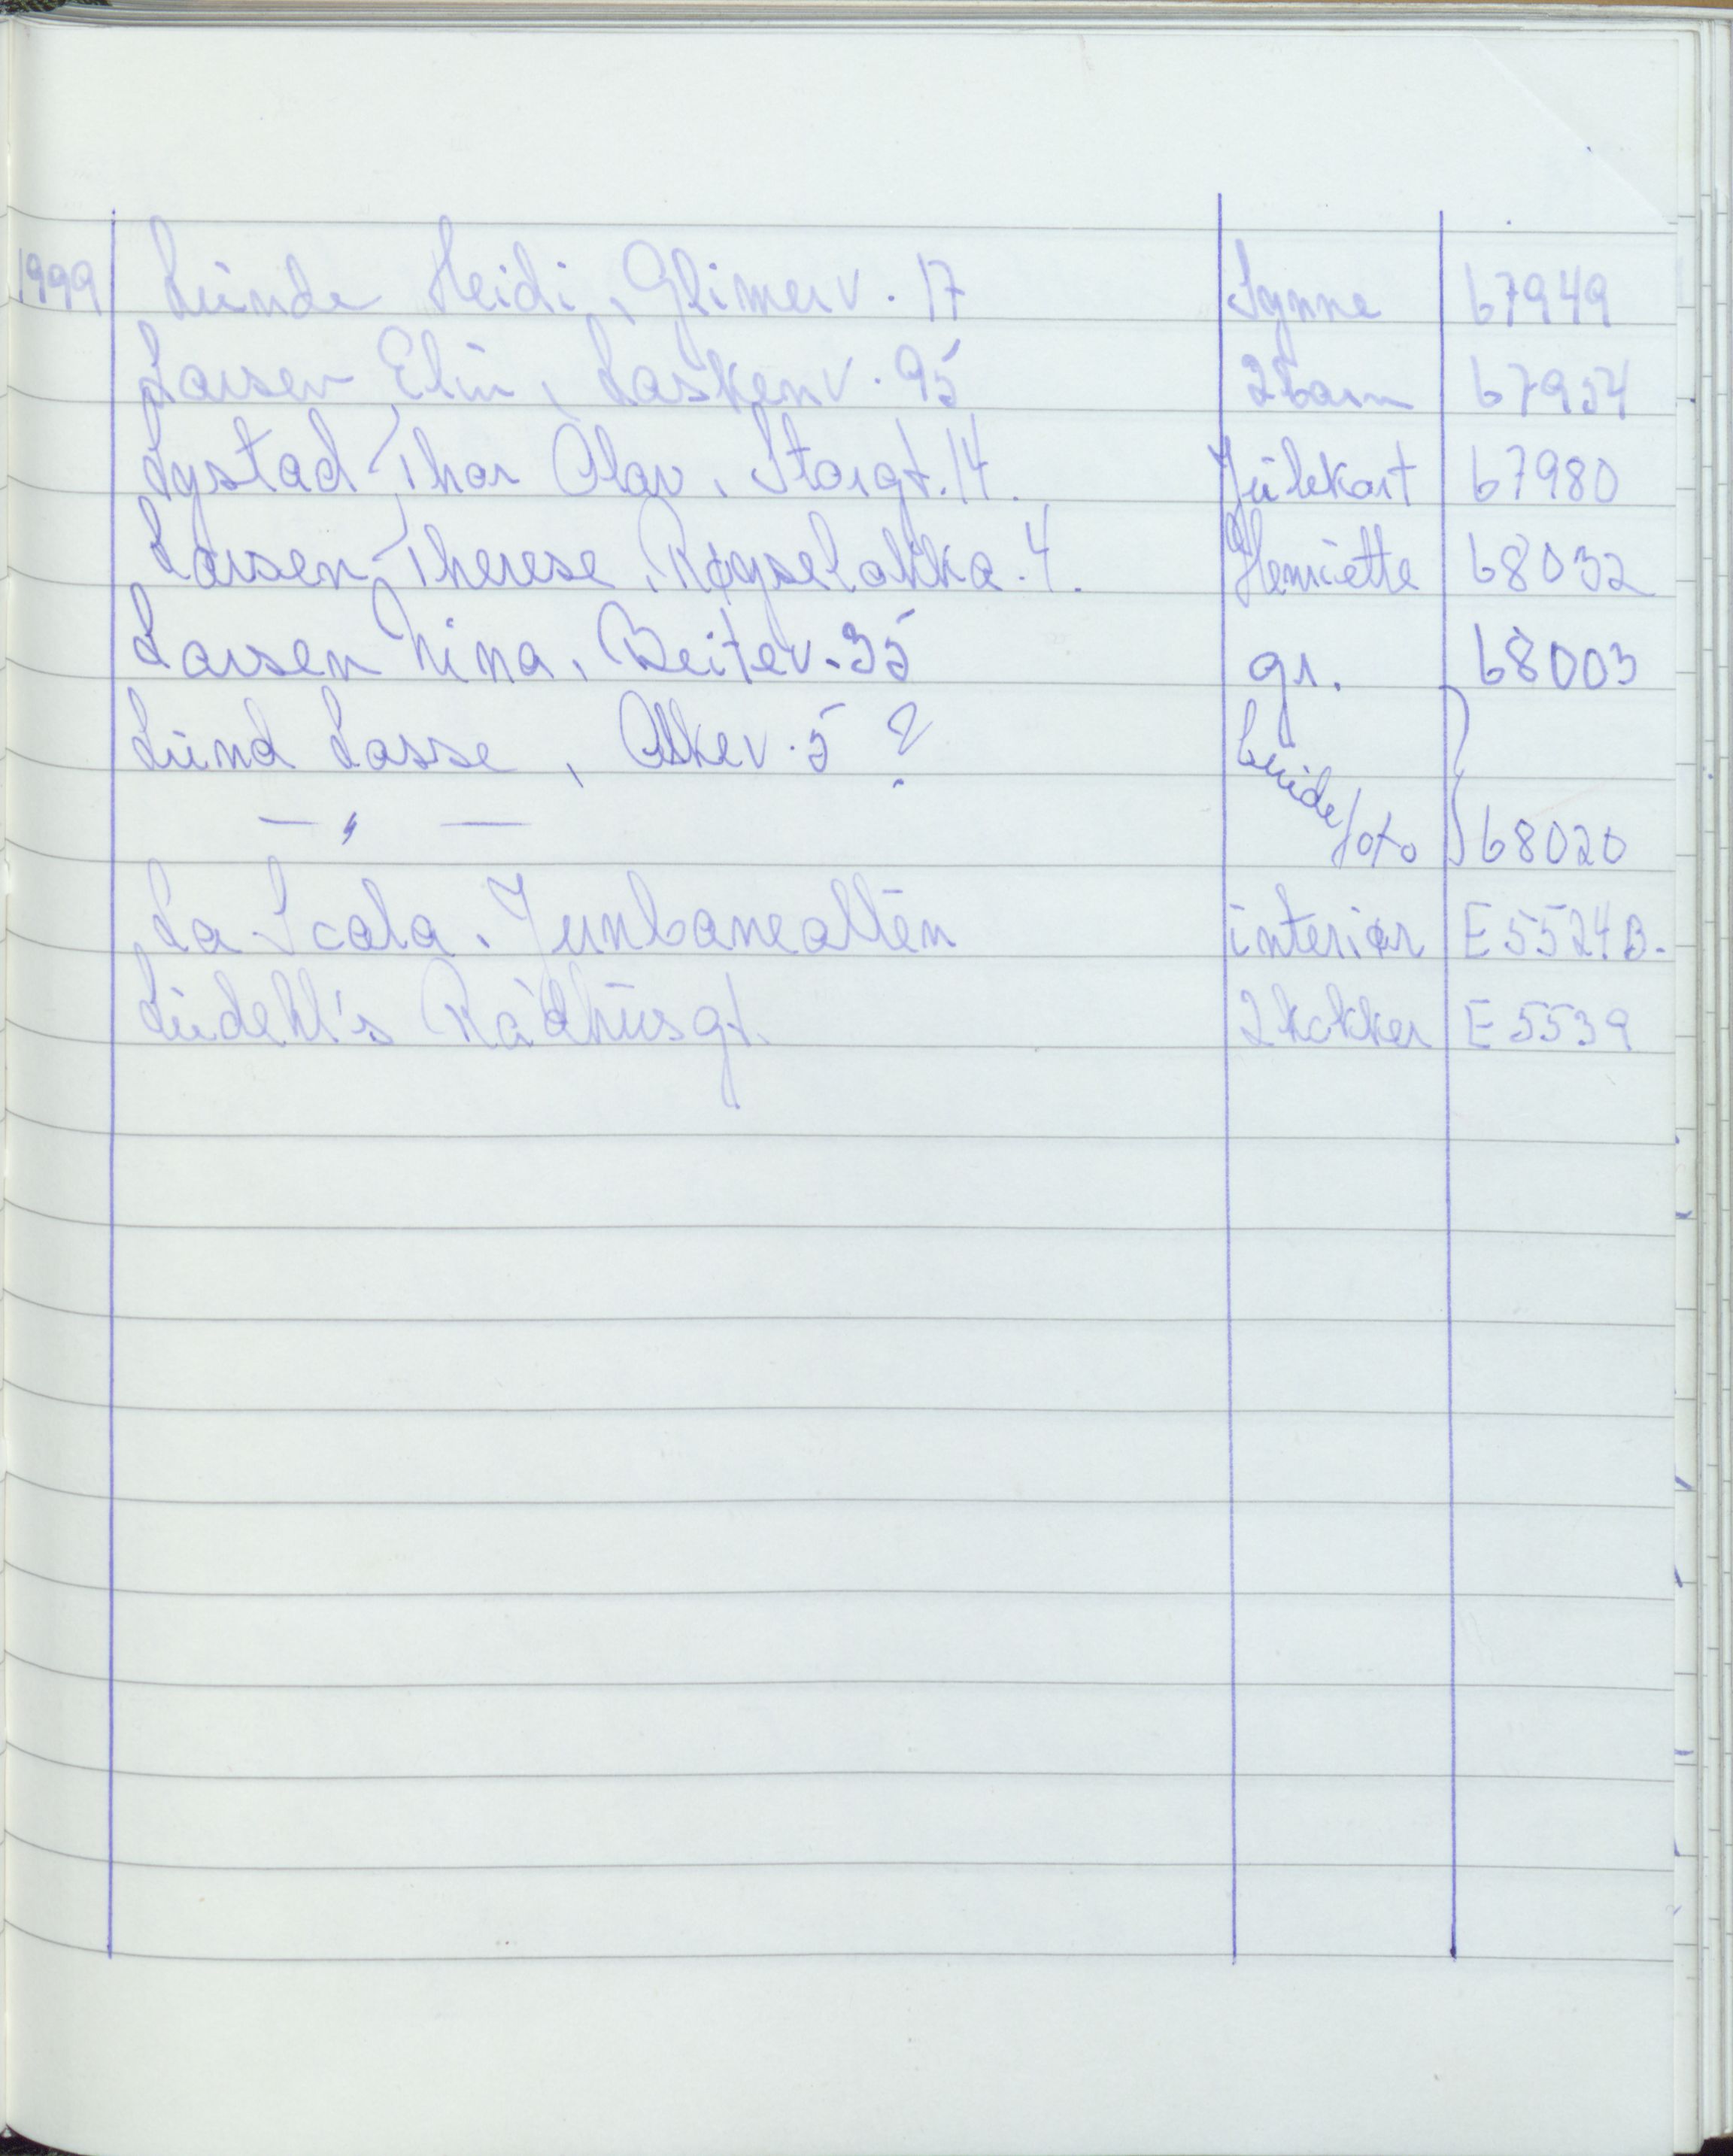 1999 Lunde Heidi, Glimerv. 17 Synne 67949
Larsen Elin, Laskenv. 95 2 barn 67954
Lystad Thor Olav, Storgt. 14. Julekort 67980
Larsen Therese, Røyseløkka 4. Henriette 68032
Larsen Nina, Beitev. 35 gr. 68003
Lund Lasse, Askev. 5 ?
brudefoto
— " — 68020
La Scala. Jernbaneallén interiør E 5524 B.
Lüdehl's Rådhusgt. 2 kokker E 5539